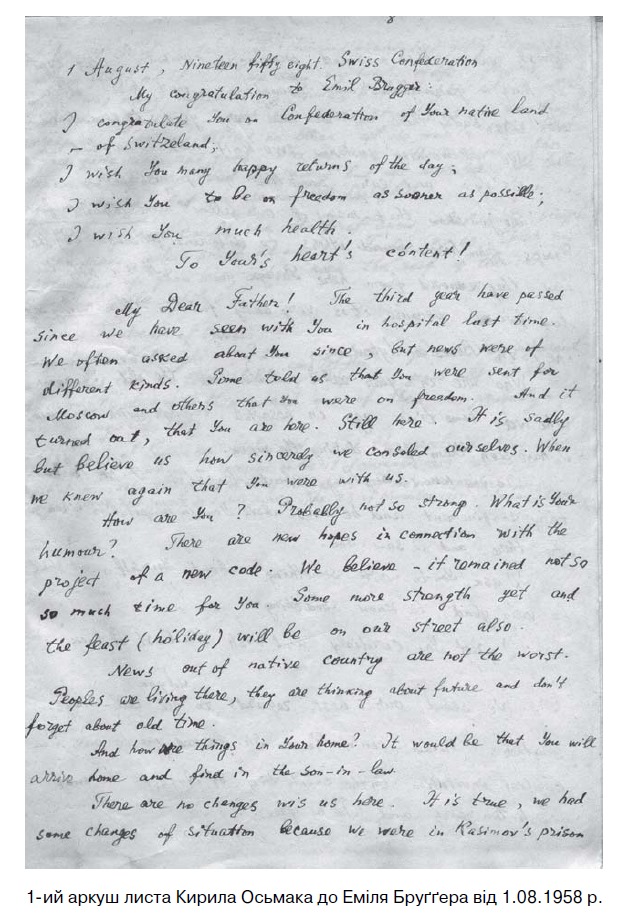 1 August, Nineteen fifty eight. Swiss Confederation
My congratulation to Emil Brugger:
I congratulate You on Confederation of Your native land
– of Switzeland;
I wish You many happy returns of the day;
I wish You to be on freedom as sooner as possible;
I wish You much health.
To Your's heart's content!
My Dear Father! The third year have passed
since we have seen with You in hospital last time.
We often asked about You since, but news were of
different kinds. Some told us that You were sent for
Moscow and others that You were on freedom. And it
turned out, that You are here. Still here. It is sadly
but believe us how sincerely we consoled ourselves. When
we knew again that You were with us.
How are You? Probably not so strong. What is Your
humour? There are new hopes in connection with the
project of a new code. We believe – it remained not so
so much time for You. Some more strength yet and
the feast (holiday) will be on our street also.
News out of native country are not the worst.
Peoples are living there, they are thinking about future and don't
forget about old time.
And how are things in Your home? It would be that You will
arrive home and find in the son-in-law.
There are no changes wis us here. It is true, we had
some changes of situation because we were in Kasimov's prison
1-ий аркуш листа Кирила Осьмака до Еміля Бруґґера від 1.08.1958 р.